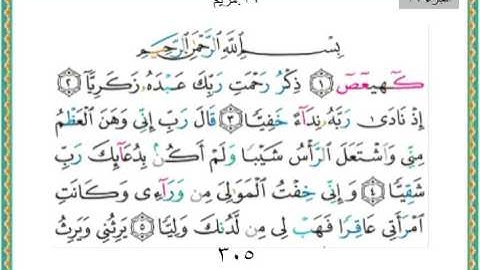 ١٩ مريم
بِسْمِ اللَّهِ الرَّحْمَٰنِ الرَّحِيمِ
كٓهيعٓصٓ ١ ذِكْرُ رَحْمَتِ رَبِّكَ عَبْدَهُۥ زَكَرِيَّآ ٢
إِذْ نَادَىٰ رَبَّهُۥ نِدَآءً خَفِيًّا ٣ قَالَ رَبِّ إِنِّى وَهَنَ ٱلْعَظْمُ
مِنِّى وَٱشْتَعَلَ ٱلرَّأْسُ شَيْبًا وَلَمْ أَكُنۢ بِدُعَآئِكَ رَبِّ
شَقِيًّا ٤ وَإِنِّى خِفْتُ ٱلْمَوَٰلِىَ مِن وَرَآءِى وَكَانَتِ
ٱمْرَأَتِى عَاقِرًا فَهَبْ لِى مِن لَّدُنكَ وَلِيًّا ٥ يَرِثُنِى وَيَرِثُ
٣٠٥